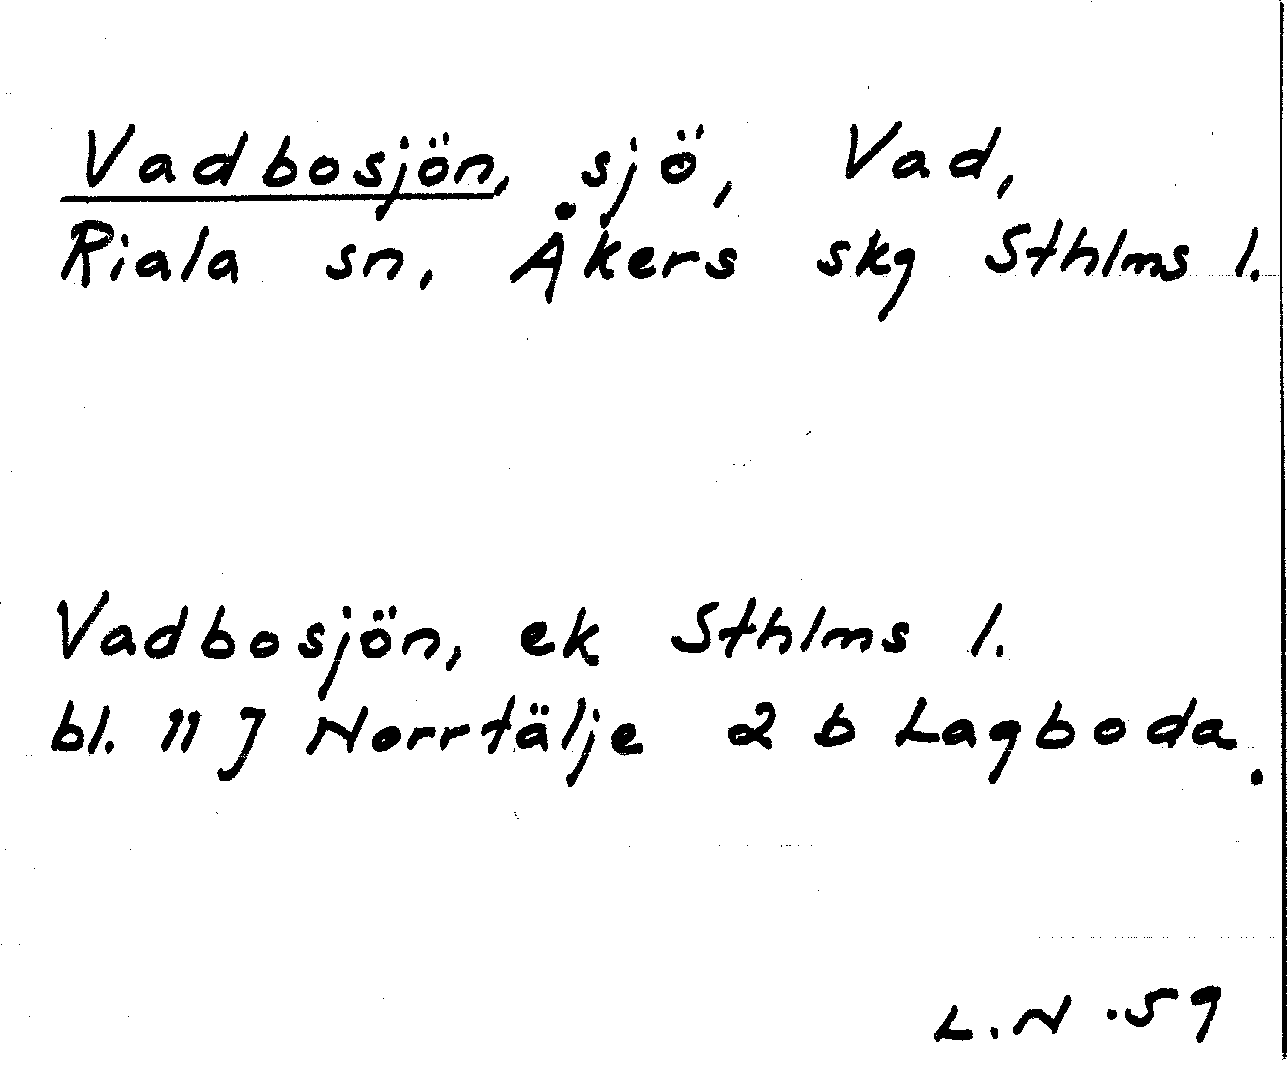 Vadbosjön, sjö, Vad,
Riala sn, Åkers skg Sthlms l.
Vadbosjön, ek Sthlms l.
bl. 11 J Norrtälje 2 b Lagboda.
L.N.59